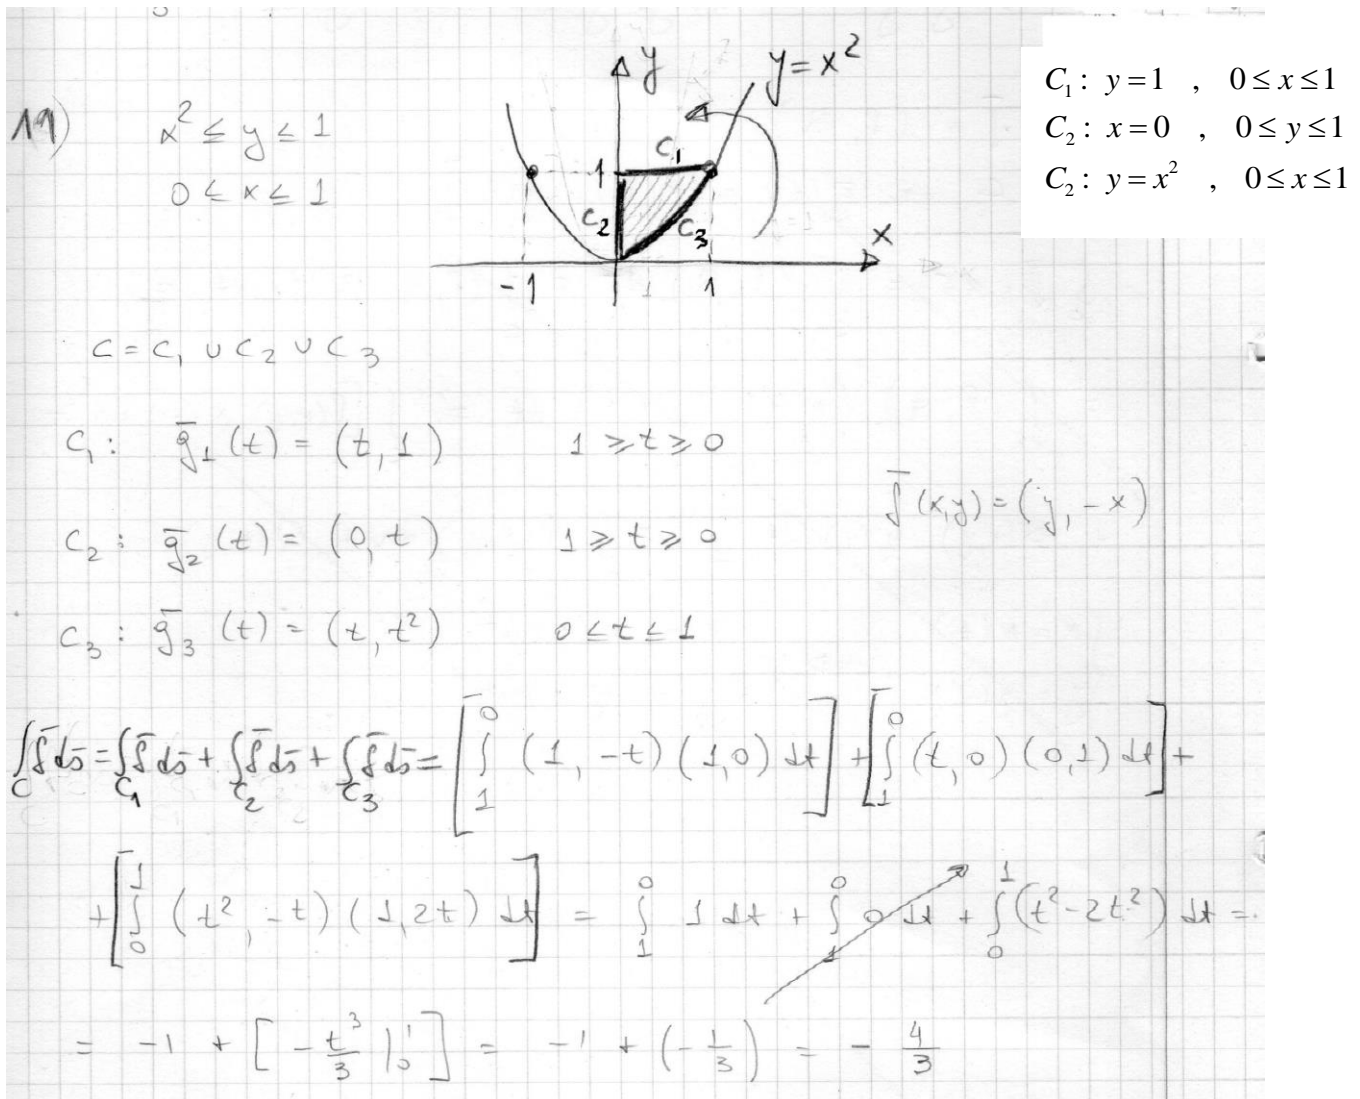 19)
x² ≤ y ≤ 1
0 ≤ x ≤ 1
y
y = x²
C₁
1
C₂
C₃
x
-1
1
C₁ : y = 1 , 0 ≤ x ≤ 1
C₂ : x = 0 , 0 ≤ y ≤ 1
C₂ : y = x² , 0 ≤ x ≤ 1
C = C₁ ∪ C₂ ∪ C₃
C₁ : g̅₁(t) = (t, 1) 1 ≥ t ≥ 0
f̅(x,y) = (y, -x)
C₂ : g̅₂(t) = (0, t) 1 ≥ t ≥ 0
C₃ : g̅₃(t) = (t, t²) 0 ≤ t ≤ 1
∫_C f̅ ds̅ = ∫_C₁ f̅ ds̅ + ∫_C₂ f̅ ds̅ + ∫_C₃ f̅ ds̅ = [∫₁⁰ (1, -t)(1,0) dt] + [∫₁⁰ (t,0)(0,1) dt] +
+ [∫₀¹ (t², -t)(1,2t) dt] = ∫₁⁰ 1 dt + ∫₁⁰ 0 dt + ∫₀¹ (t² - 2t²) dt =
= -1 + [-t³/3 |₀¹] = -1 + (-1/3) = -4/3